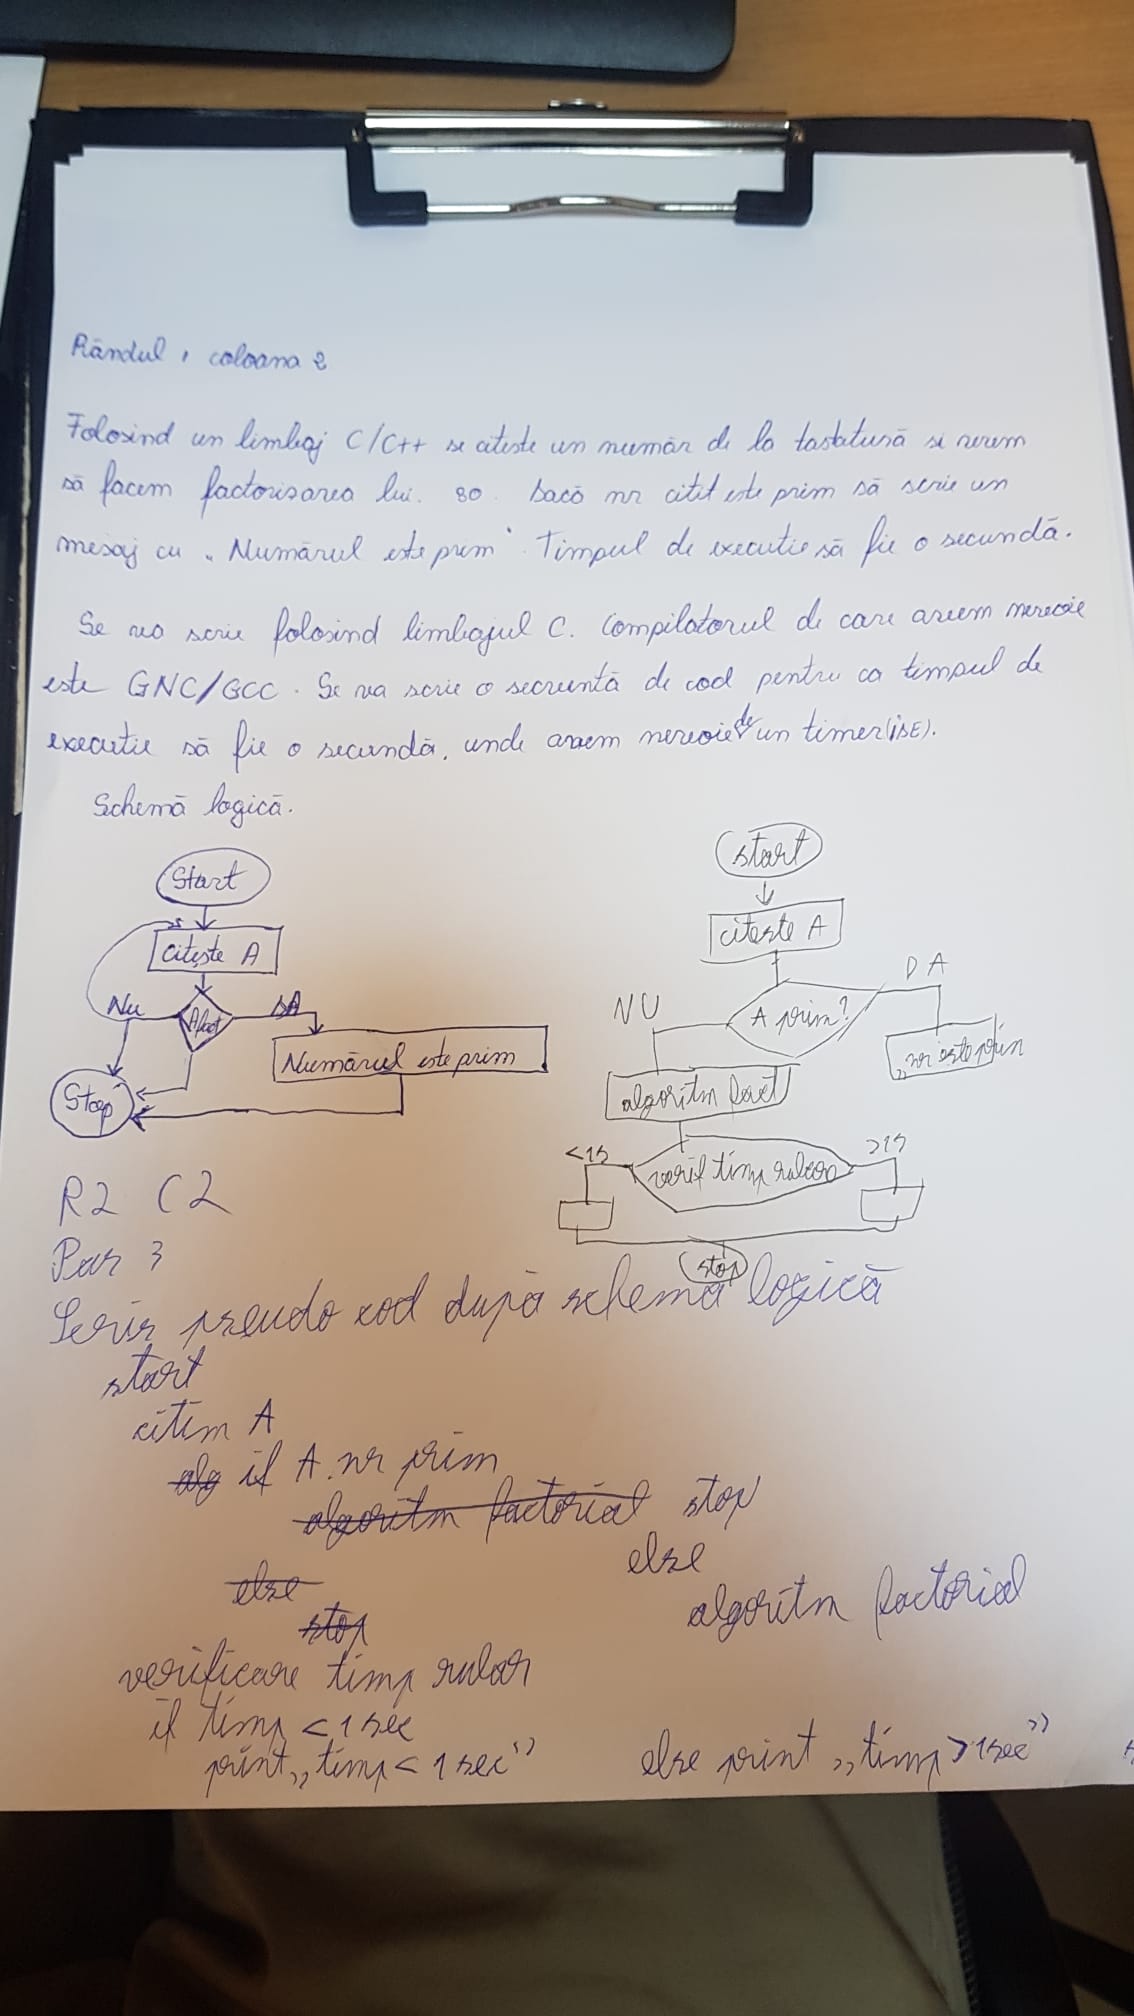 Rândul 1 coloana 2
Folosind un limbaj C/C++ se citeste un număr de la tastatură si vrem
să facem factorisarea lui. 80. Dacă nr citit este prim să scrie un
mesaj cu „Numărul este prim" Timpul de executie să fie o secundă.
Se va scrie folosind limbajul C. Compilatorul de care avem nevoie
este GNC/GCC. Se va scrie o secventă de cod pentru ca timpul de
executie să fie o secundă, unde avem nevoie de un timer (ISE).
Schemă logică.
Start
citeşte A
Nu
A fact
DA
Numărul este prim
Stop
start
citeste A
NU
A prim?
DA
„nr este prim
algoritm fact
<1s
verif timp rulare
>1s
stop
R2 C2
Par 3
Scris pseudo cod după schemă logică
start
citim A
alg if A. nr prim
algoritm factorial stop
else
else
algoritm factorial
stop
verificare timp rular
if timp < 1 sec
print „timp < 1 sec”
else print „timp > 1sec”